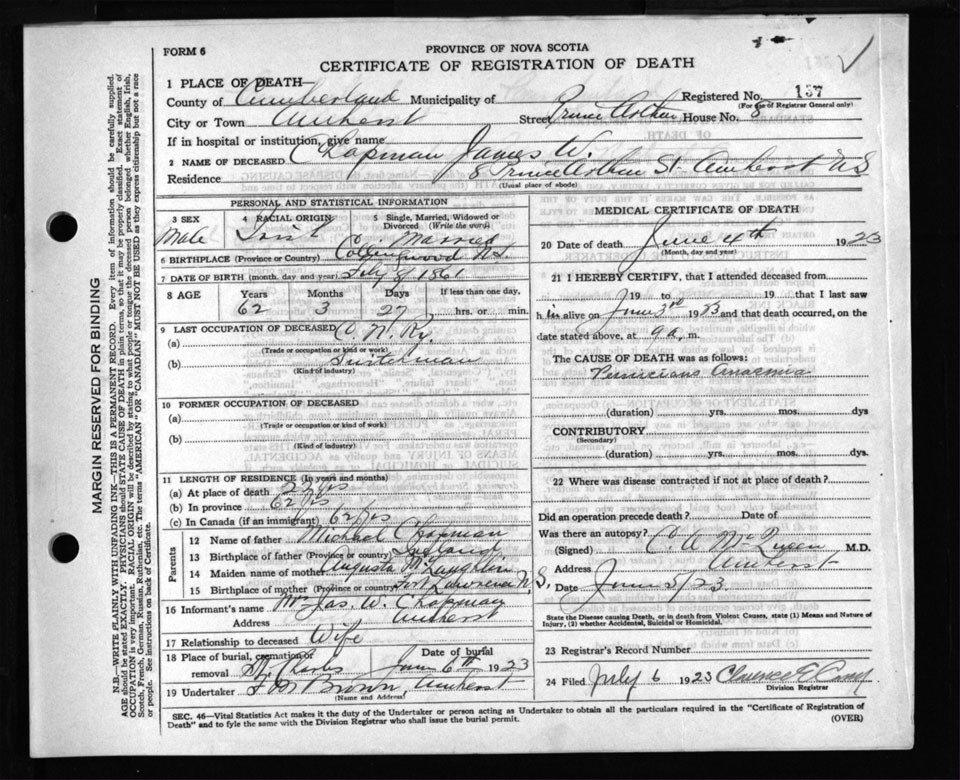 FORM 6
PROVINCE OF NOVA SCOTIA
CERTIFICATE OF REGISTRATION OF DEATH
1 PLACE OF DEATH—
County of Cumberland Municipality of Registered No. 157
(For use of Registrar General only)
City or Town Amherst Street Prince Arthur House No. 8
If in hospital or institution, give name
2 NAME OF DECEASED Chapman James W.
Residence 8 Prince Arthur St. Amherst NS
(Usual place of abode)
PERSONAL AND STATISTICAL INFORMATION
3 SEX Male
4 RACIAL ORIGIN Irish
5 Single, Married, Widowed or Divorced (Write the word) Married
6 BIRTHPLACE (Province or Country) Collingwood N.S.
7 DATE OF BIRTH (month, day and year) 8/ 1861
8 AGE Years Months Days If less than one day,
62 3 27 hrs. or min.
9 LAST OCCUPATION OF DECEASED
(a) C. N. Ry.
(Trade or occupation or kind or work)
(b) Switchman
(Kind of industry)
10 FORMER OCCUPATION OF DECEASED
(a)
(Trade or occupation or kind of work)
(b)
(Kind of industry)
11 LENGTH OF RESIDENCE (In years and months)
(a) At place of death yrs
(b) In province 62 yrs
(c) In Canada (if an immigrant) 62 yrs
Parents
12 Name of father Michael Chapman
13 Birthplace of father (Province or country) Ireland
14 Maiden name of mother Augusta McLaughlin
15 Birthplace of mother (Province or country) Fort Lawrence N.S.
16 Informant's name Mrs Jas. W. Chapman
Address Amherst
17 Relationship to deceased Wife
18 Place of burial, cremation or removal St Charles Date of burial June 6th 1923
19 Undertaker Brown, Amherst
(Name and Address)
MEDICAL CERTIFICATE OF DEATH
20 Date of death June 4th 1923
(Month, day and year)
21 I HEREBY CERTIFY, that I attended deceased from
in 19 to 19 that I last saw
h im alive on June 3rd 1923 and that death occurred, on the
date stated above, at 9 a. m.
The CAUSE OF DEATH was as follows:
Pernicious Anaemia
(duration) yrs. mos. dys
CONTRIBUTORY
(Secondary)
(duration) yrs. mos. dys.
22 Where was disease contracted if not at place of death?
Did an operation precede death? Date of
Was there an autopsy?
(Signed) C. A. McQueen M.D.
Address Amherst
Date June 5/23
State the Disease Causing Death, or in death from Violent Causes, state (1) Means and Nature of Injury, (2) whether Accidental, Suicidal or Homicidal.
23 Registrar's Record Number
24 Filed July 6 1923 Clarence
Division Registrar
SEC. 46—Vital Statistics Act makes it the duty of the Undertaker or person acting as Undertaker to obtain all the particulars required in the "Certificate of Registration of
Death" and to fyle the same with the Division Registrar who shall issue the burial permit. (OVER)
MARGIN RESERVED FOR BINDING
N.B.—WRITE PLAINLY WITH UNFADING INK—THIS IS A PERMANENT RECORD. Every item of information should be carefully supplied.
AGE should be stated EXACTLY. PHYSICIANS should STATE CAUSE OF DEATH in plain terms, so that it may be properly classified. Exact statement of
OCCUPATION is very important. RACIAL ORIGIN will be described by stating to what people or tongue the deceased person belonged whether English, Irish,
Scotch, French, German, Russian, Ruthenian, etc. The terms "AMERICAN" OR "CANADIAN" MUST NOT BE USED as they express citizenship but not a race
or people. See instructions on back of Certificate.